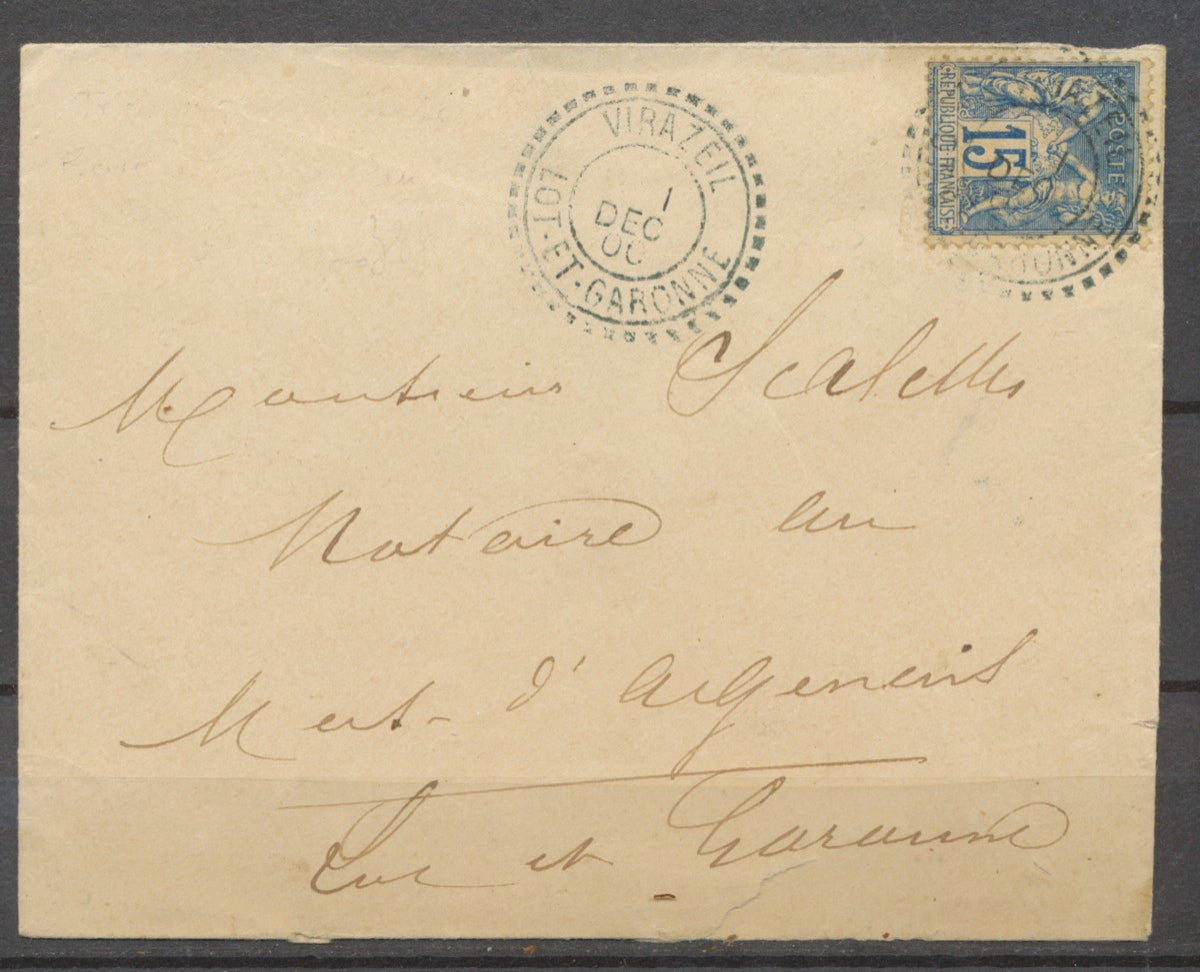 VIRAZEIL
1
DEC
00
LOT-ET-GARONNE
POSTE
15
RÉPUBLIQUE FRANÇAISE
Monsieur
Notaire au
Mas d'Agenais
Lot et Garonne